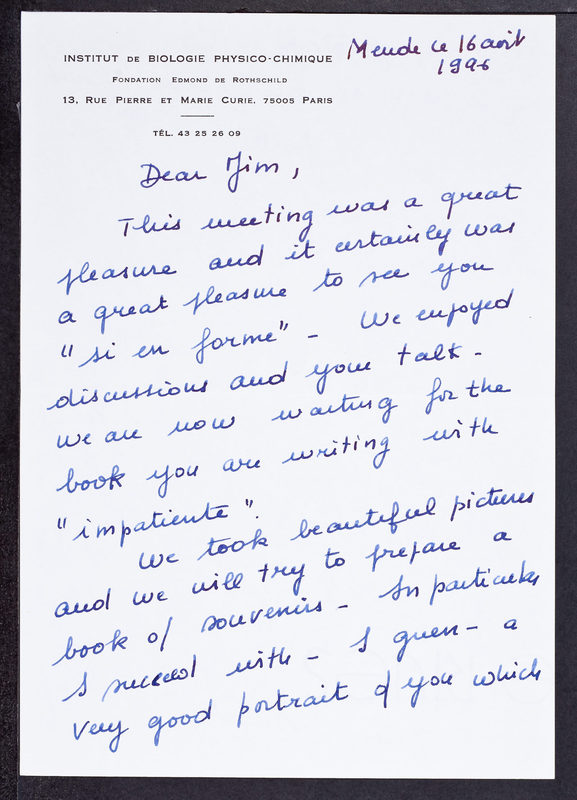 INSTITUT DE BIOLOGIE PHYSICO-CHIMIQUE
FONDATION EDMOND DE ROTHSCHILD
13, RUE PIERRE ET MARIE CURIE, 75005 PARIS
TÉL. 43 25 26 09
Mende le 16 août
1996
Dear Jim,
This meeting was a great
pleasure and it certainly was
a great pleasure to see you
"si en forme" - We enjoyed
discussions and your talk -
We are now waiting for the
book you are writing with
"impatiente".
We took beautiful pictures
and we will try to prepare a
book of souvenirs - In particular
I succeed with - I guess - a
very good portrait of you which